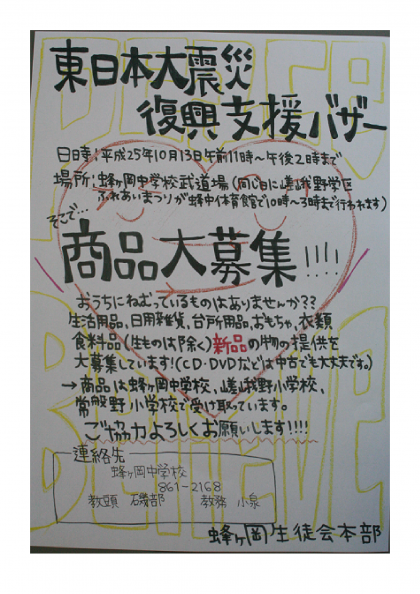 東日本大震災
復興支援バザー
日時:平成25年10月13日午前11時~午後2時まで
場所:蜂ヶ岡中学校武道場(同じ日に嵯峨野学区
ふれあいまつりが蜂中体育館で10時~3時まで行われます)
そこで…
商品大募集!!!!
おうちにねむっているものはありませんか??
生活用品、日用雑貨、台所用品、おもちゃ、衣類
食料品(生ものは除く)新品の物の提供を
大募集しています!(CD・DVDなどは中古でも大丈夫です。)
→商品は蜂ヶ岡中学校、嵯峨野小学校、
常磐野小学校で受け取っています。
ご協力よろしくお願いします!!!!
連絡先
蜂ヶ岡中学校
861-2168
教頭 磯部 教務 小泉
蜂ヶ岡生徒会本部
BELIEVE